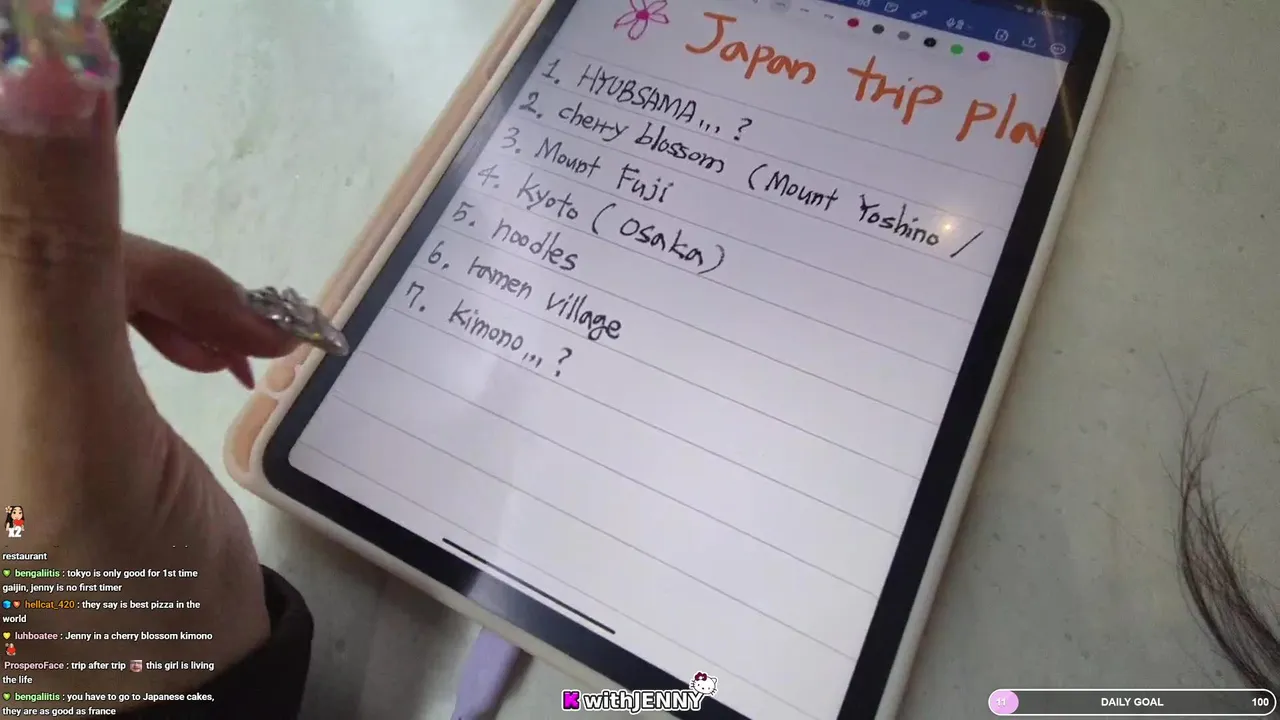 Japan trip pla
1. HYUBSAMA,,, ?
2. cherry blossom (Mount Yoshino /
3. Mount Fuji
4. Kyoto (Osaka)
5. noodles
6. ramen village
7. Kimono,,, ?
restaurant
bengaliitis : tokyo is only good for 1st time
gaijin, jenny is no first timer
hellcat_420 : they say is best pizza in the
world
luhboatee : Jenny in a cherry blossom kimono
ProsperoFace : trip after trip this girl is living
the life
bengaliitis : you have to go to Japanese cakes,
they are as good as france
K withJENNY
11 DAILY GOAL 100